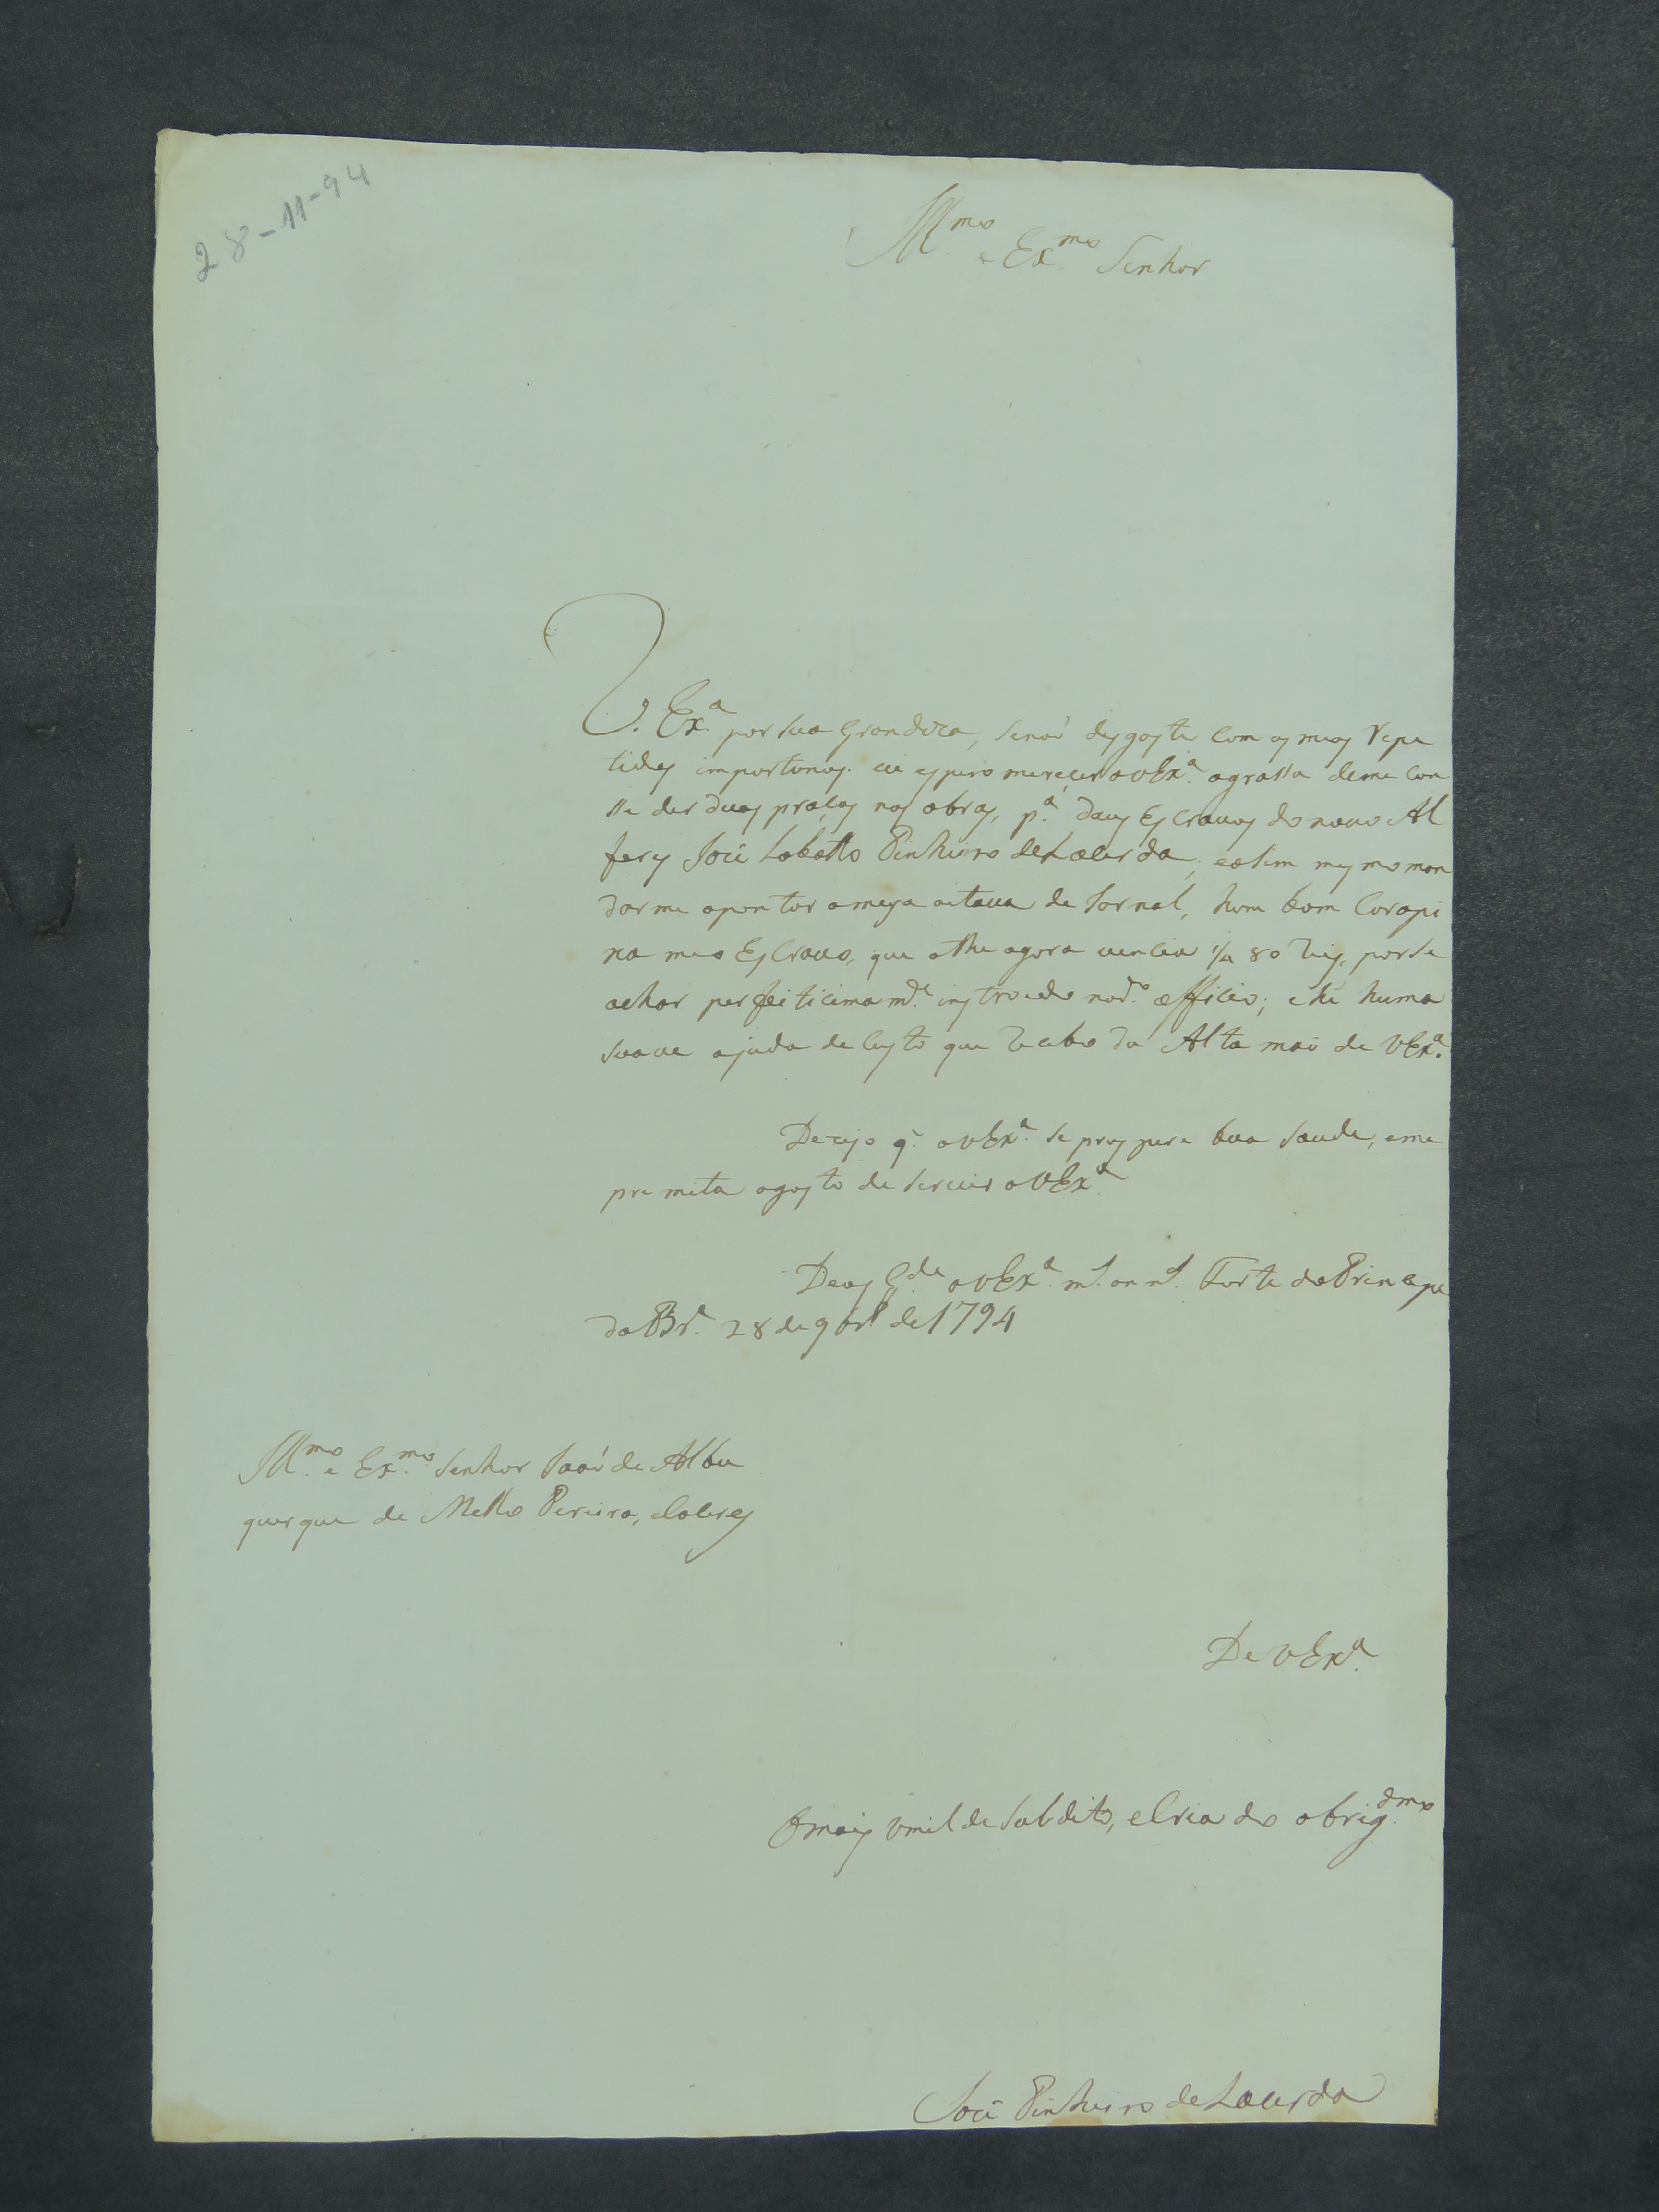 28-11-94
Ill.mo e Ex.mo Senhor
V. Ex.a por sua Grandeza, senaó desgoste com os meos repe
tides importunos. eu espero mereçer a vEx.a agrassa deme Con
sse der duas praças nas obras, p.a dous Escravos do novo Al
feres Joze Lobatto Pinheiro deLacerda, easim mesmo man
darme apontar ameya oitava de Jornal, hum bom Carapi
na meo Escravo, que athe agora vencia 1/4 80 reis, porse
achar perfeiticimam.de instroido nod.o officio; ehé huma
suave ajuda de custo que recebo da Alta maó de VEx.a
Dezejo q. avEx.a se prospere boa saude, eme
premita agosto de servir aVEx.a
Deos G.de avEx.a m.s ann.s Forte do Princepe
da Br.a 28 de 9br.o de 1794
Ill.mo e Ex.mo Senhor Joaó de Albu
querque de Mello Pereira, eCaceres
De VEx.a
Omais Umilde Subdito, eCriado obrig.dmo
Joze Pinheiro deLacerda